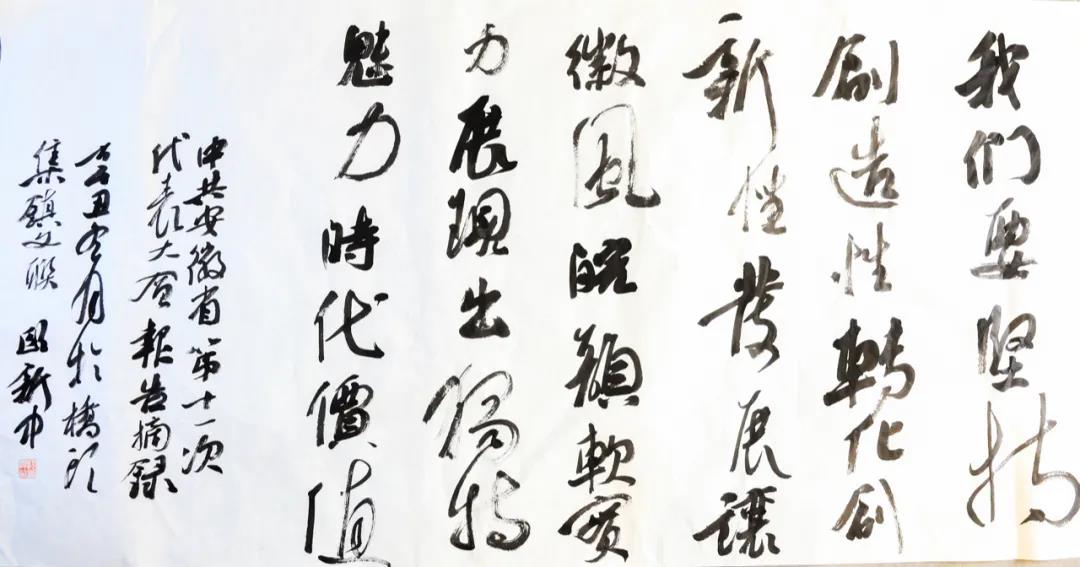 我们要坚持
創造性轉化創
新性發展讓
徽風皖韻軟實
力展現出獨特
魅力時代價值
中共安徽省第十一次
代表大會報告摘録
辛丑冬月於橋頭
集鎮文聯 國新书